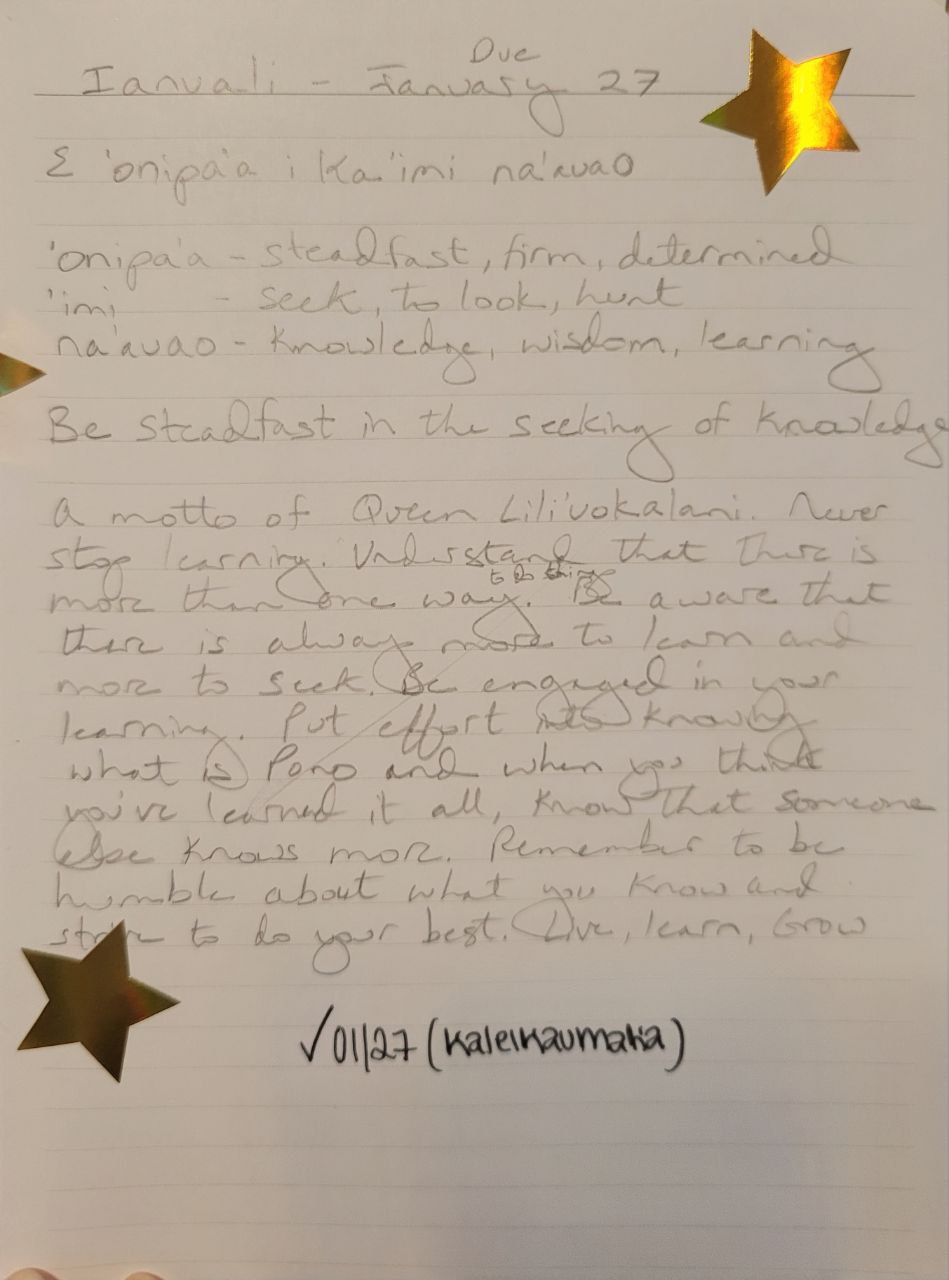 Due
Ianuali - January 27
E 'onipa'a i ka 'imi na'auao
'onipa'a - steadfast, firm, determined
'imi - seek, to look, hunt
na'auao - knowledge, wisdom, learning
Be steadfast in the seeking of knowledge
A motto of Queen Lili'uokalani. Never
stop learning. Understand that there is
to do things
more than one way. Be aware that
there is always more to learn and
more to seek. Be engaged in your
learning. Put effort into knowing
what is Pono and when you think
you've learned it all, know that someone
else knows more. Remember to be
humble about what you know and
strive to do your best. Live, learn, Grow
√01/27 (Kaleikaumaka)